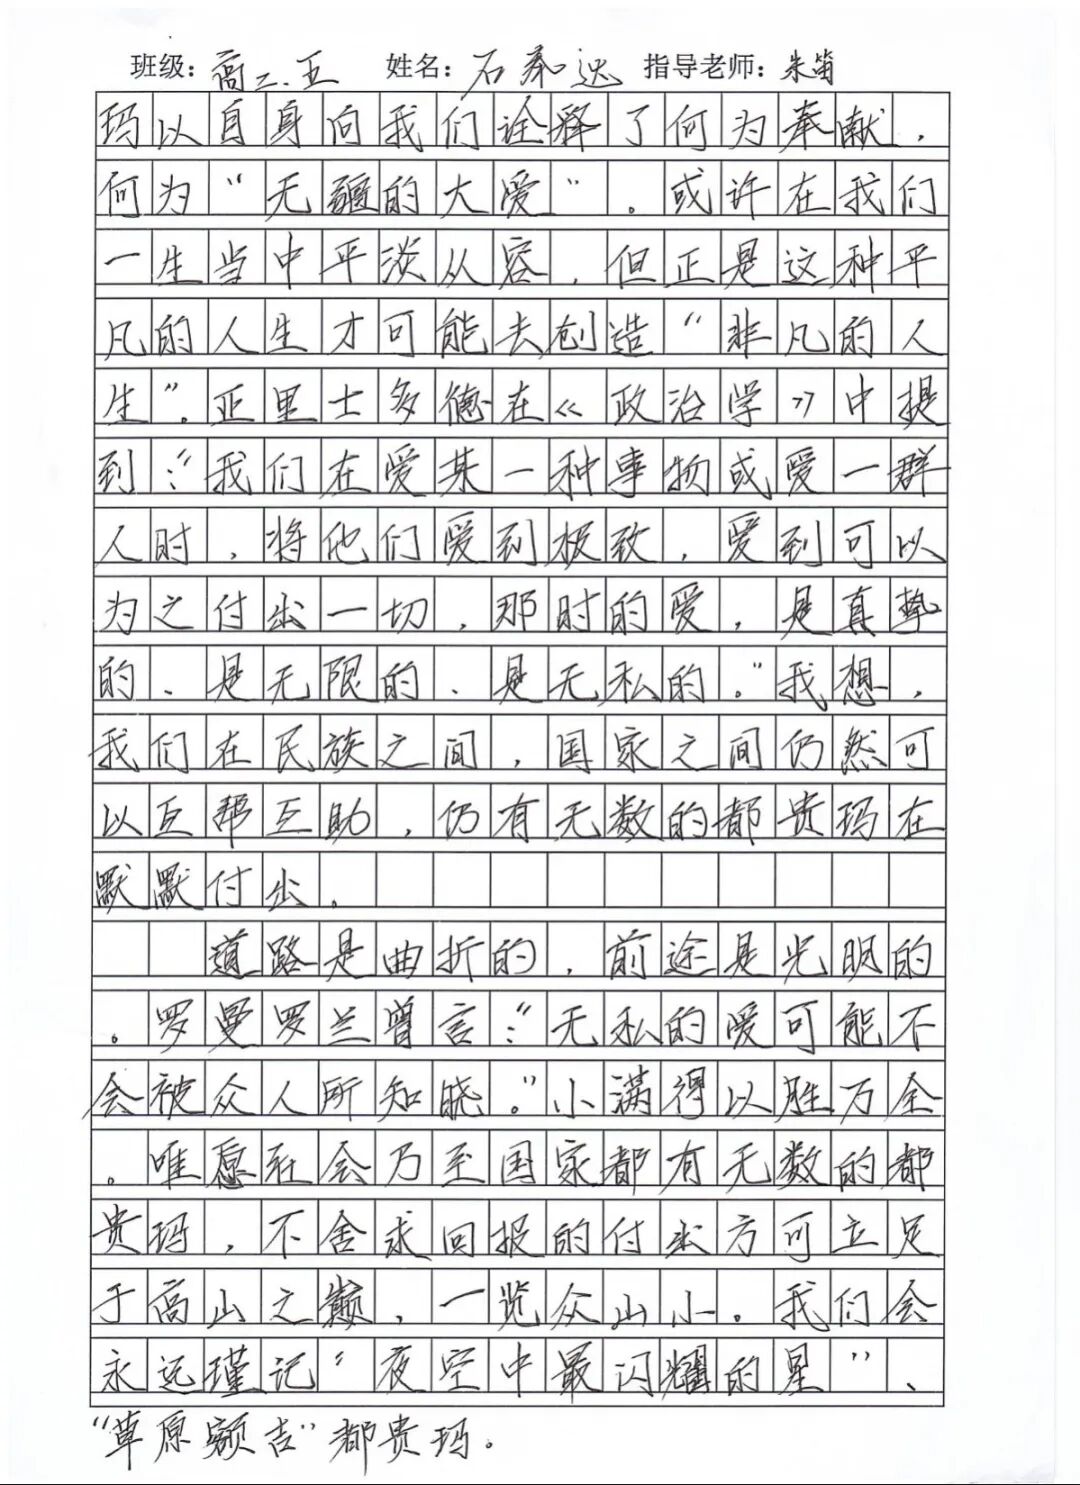 班级：高二.五 姓名：石秦逸 指导老师：朱笛
玛以自身向我们诠释了何为奉献，
何为“无疆的大爱”。或许在我们
一生当中平淡从容，但正是这种平
凡的人生才可能去创造“非凡的人
生”。亚里士多德在《政治学》中提
到：“我们在爱某一种事物或爱一群
人时，将他们爱到极致，爱到可以
为之付出一切，那时的爱，是真挚
的、是无限的、是无私的。”我想，
我们在民族之间，国家之间仍然可
以互帮互助，仍有无数的都贵玛在
默默付出。
道路是曲折的，前途是光明的
。罗曼罗兰曾言：“无私的爱可能不
会被众人所知晓。”小满得以胜万全
。唯愿社会乃至国家都有无数的都
贵玛，不舍求回报的付出方可立足
于高山之巅，一览众山小。我们会
永远瑾记“夜空中最闪耀的星”、
“草原额吉”都贵玛。